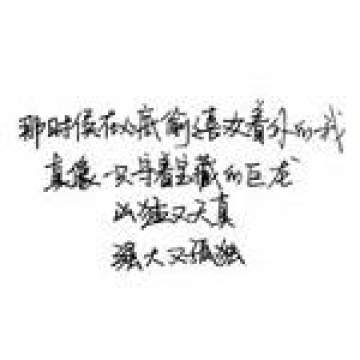 那时候在心底偷偷喜欢着你的我
真像一只守着宝藏的巨龙
凶猛又天真
强大又孤独